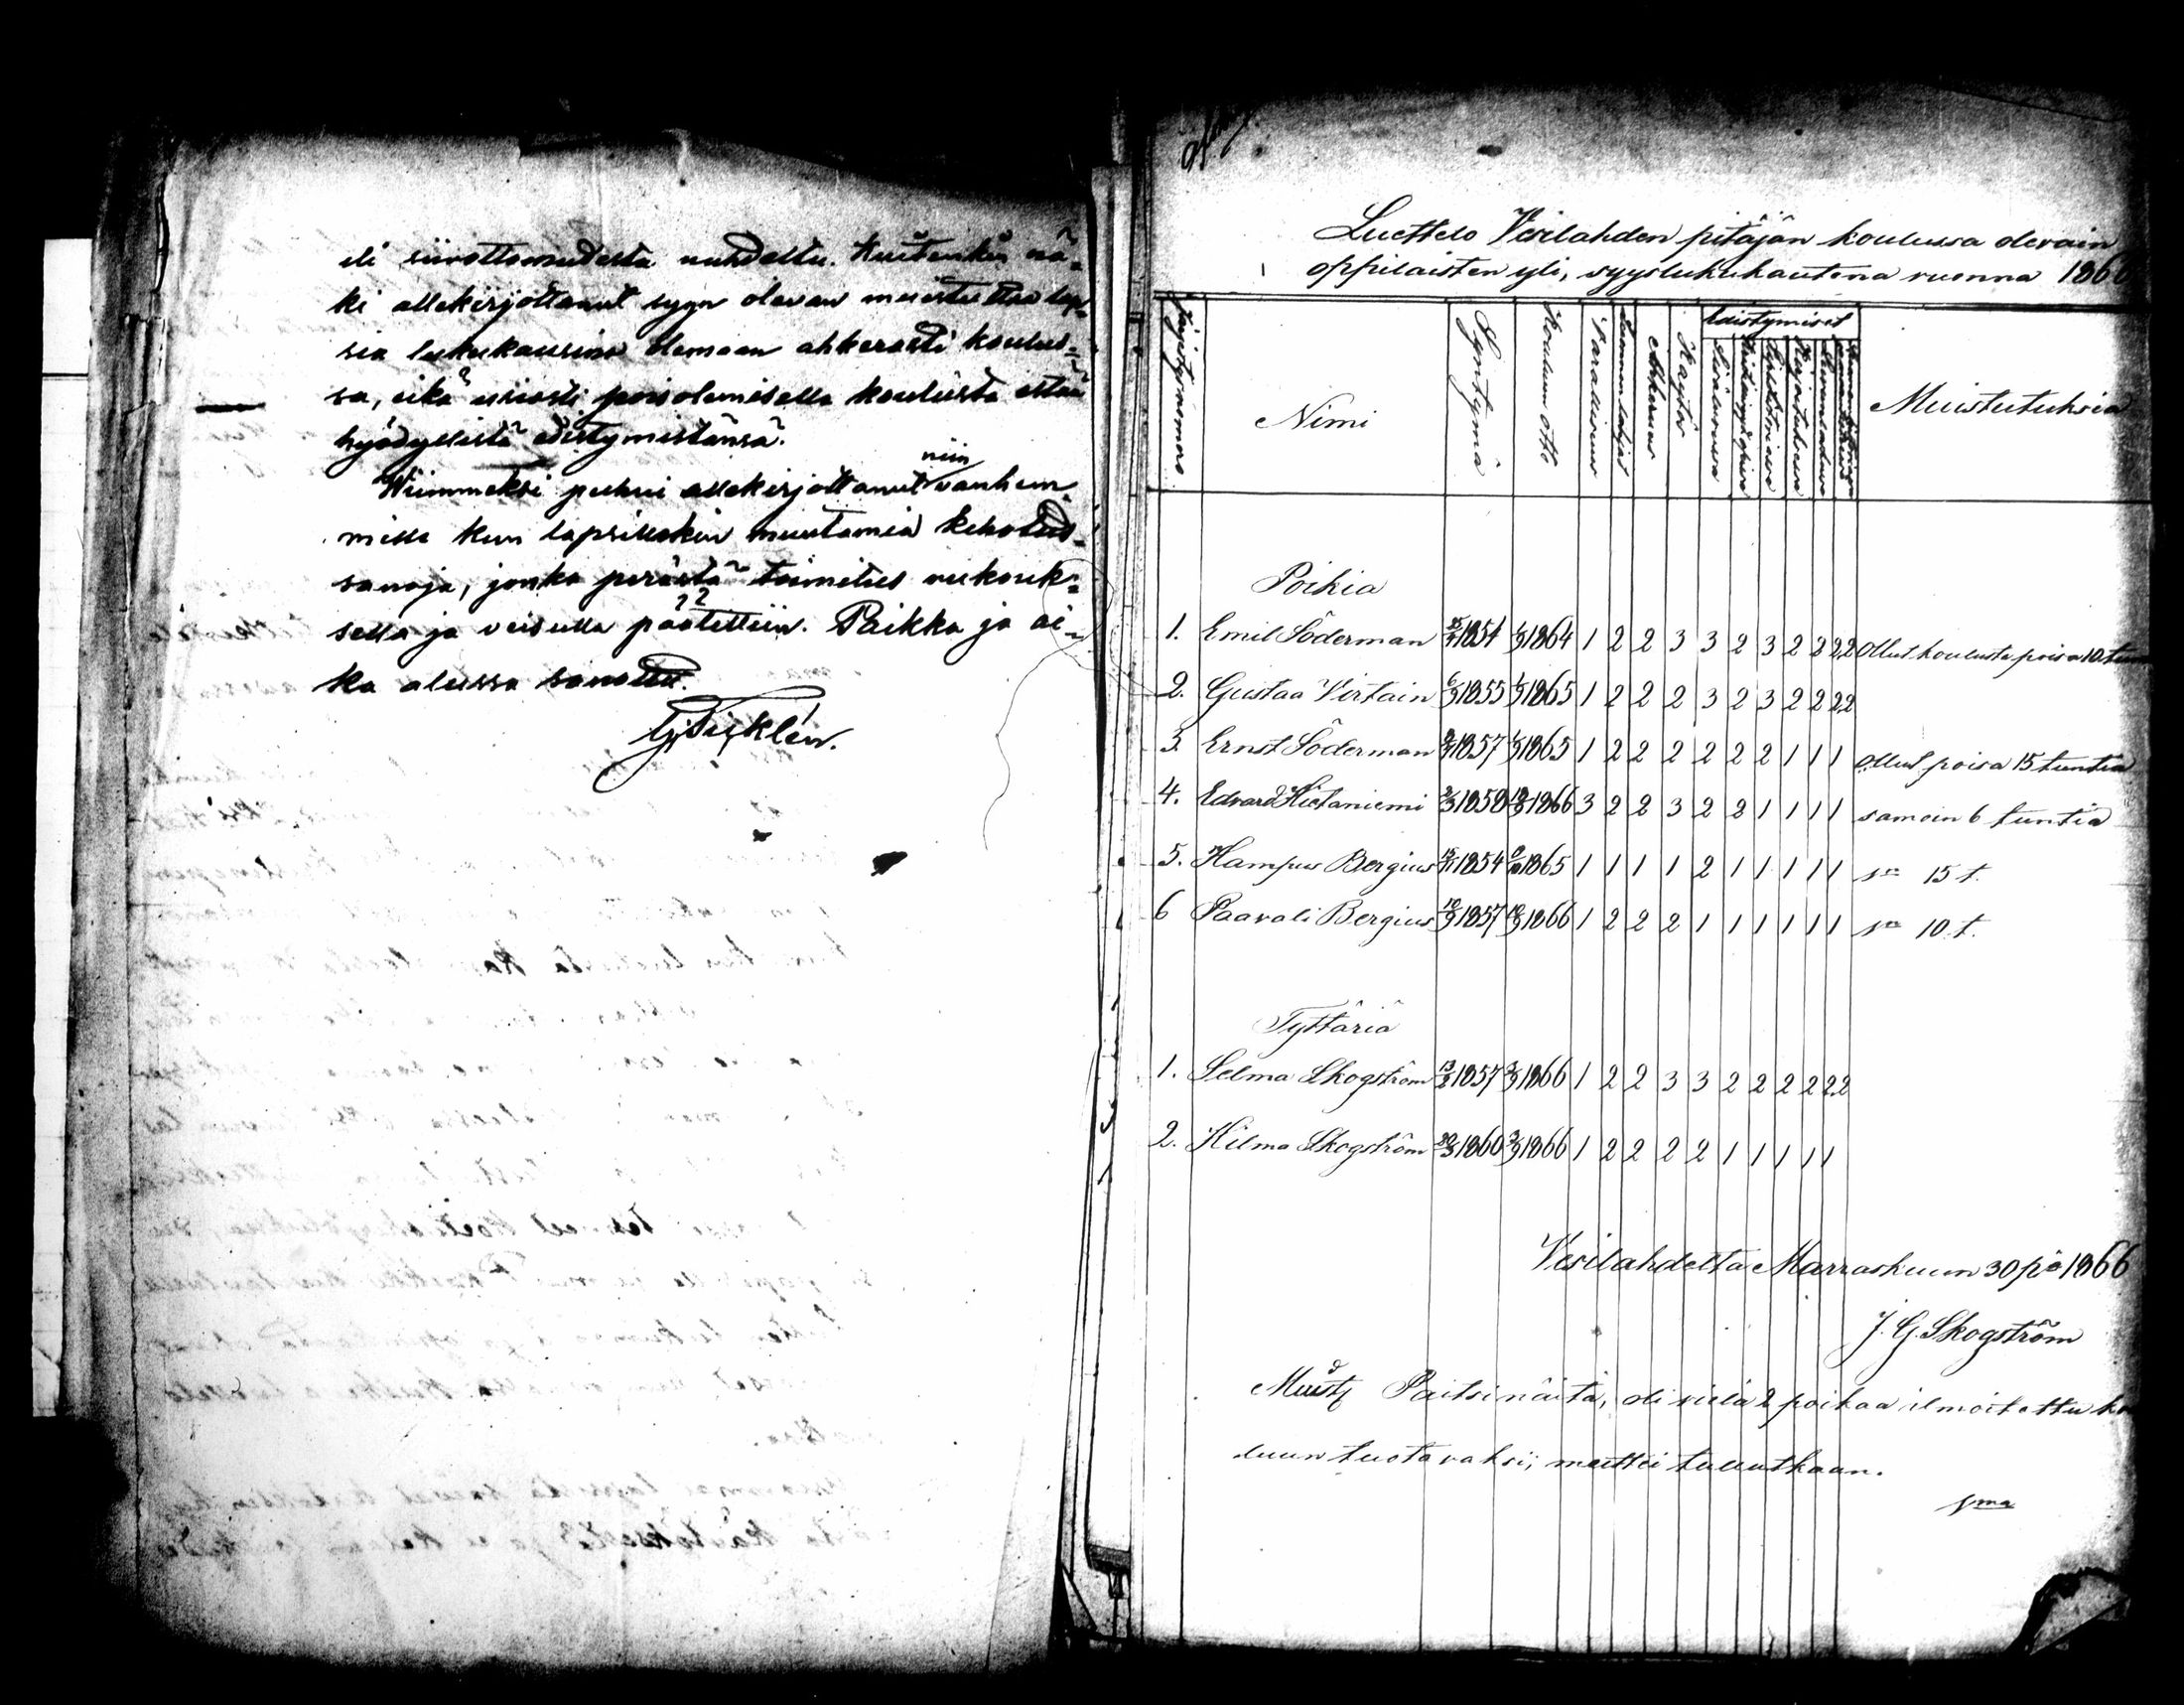 eli siivottomudesta nuhdeltu. Kuitenkin nä-
ki allekirjottanut syyn olevan muistuttaa lap-
sia lukukausina olemaan ahkerasti koulus-
sa, eikä usiasti poisolemisella koulusta estää
hyödyllistä edistymistänsä.
Wiimmeksi puhui allekirjottanut niin vanhem-
mille kun lapsillekin muutamia kehotus-
sanoja, jonka perästä toimitus rukouk-
sella ja veisulla päätettiin. Paikka ja ai-
ka alussa sanottu.
Luettelo Vesilahden pitäjän koulussa olevain
oppilaisten yli, syyslukukautena vuonna 1866
Järjestysnomro Nimi Syntymä Koulun otto Siveydessä Ahkeruus Käytös Edistymiset Muistutuksia
Poikia
1. Emil Söderman 1854 1/9 1864 1 2 2 3 3 2 3 2 2 2 2 Ollut koulusta poisa 10 tun
2. Gustaa Virtain 6/9 1855 1/9 1865 1 2 2 2 3 2 3 2 2 2 2
3. Ernst Söderman 1857 1/9 1865 1 2 2 2 2 2 2 1 1 1 ollut poisa 15 tuntia
4. Edvard Hietaniemi 1858 1866 3 2 2 3 2 2 1 1 1 1 samoin 6 tuntia
5. Hampus Bergius 1854 1865 1 1 1 1 2 1 1 1 1 1 sn 15 t.
6 Paavali Bergius 1857 1866 1 2 2 2 1 1 1 1 1 1 sn 10 t.
Tyttäriä
1. Selma Skogström 1857 3/9 1866 1 2 2 3 3 2 2 2 2 2 2
2. Hilma Skogström 1860 3/9 1866 1 2 2 2 2 1 1 1 1 1
Vesilahdelta Marraskuun 30 pä 1866
J. G. Skogström
Muist Paitsi näitä, oli vielä 2 poikaa ilmoitettu ko
luun tuotavaksi; mutt'ei tullutkaan.
sma